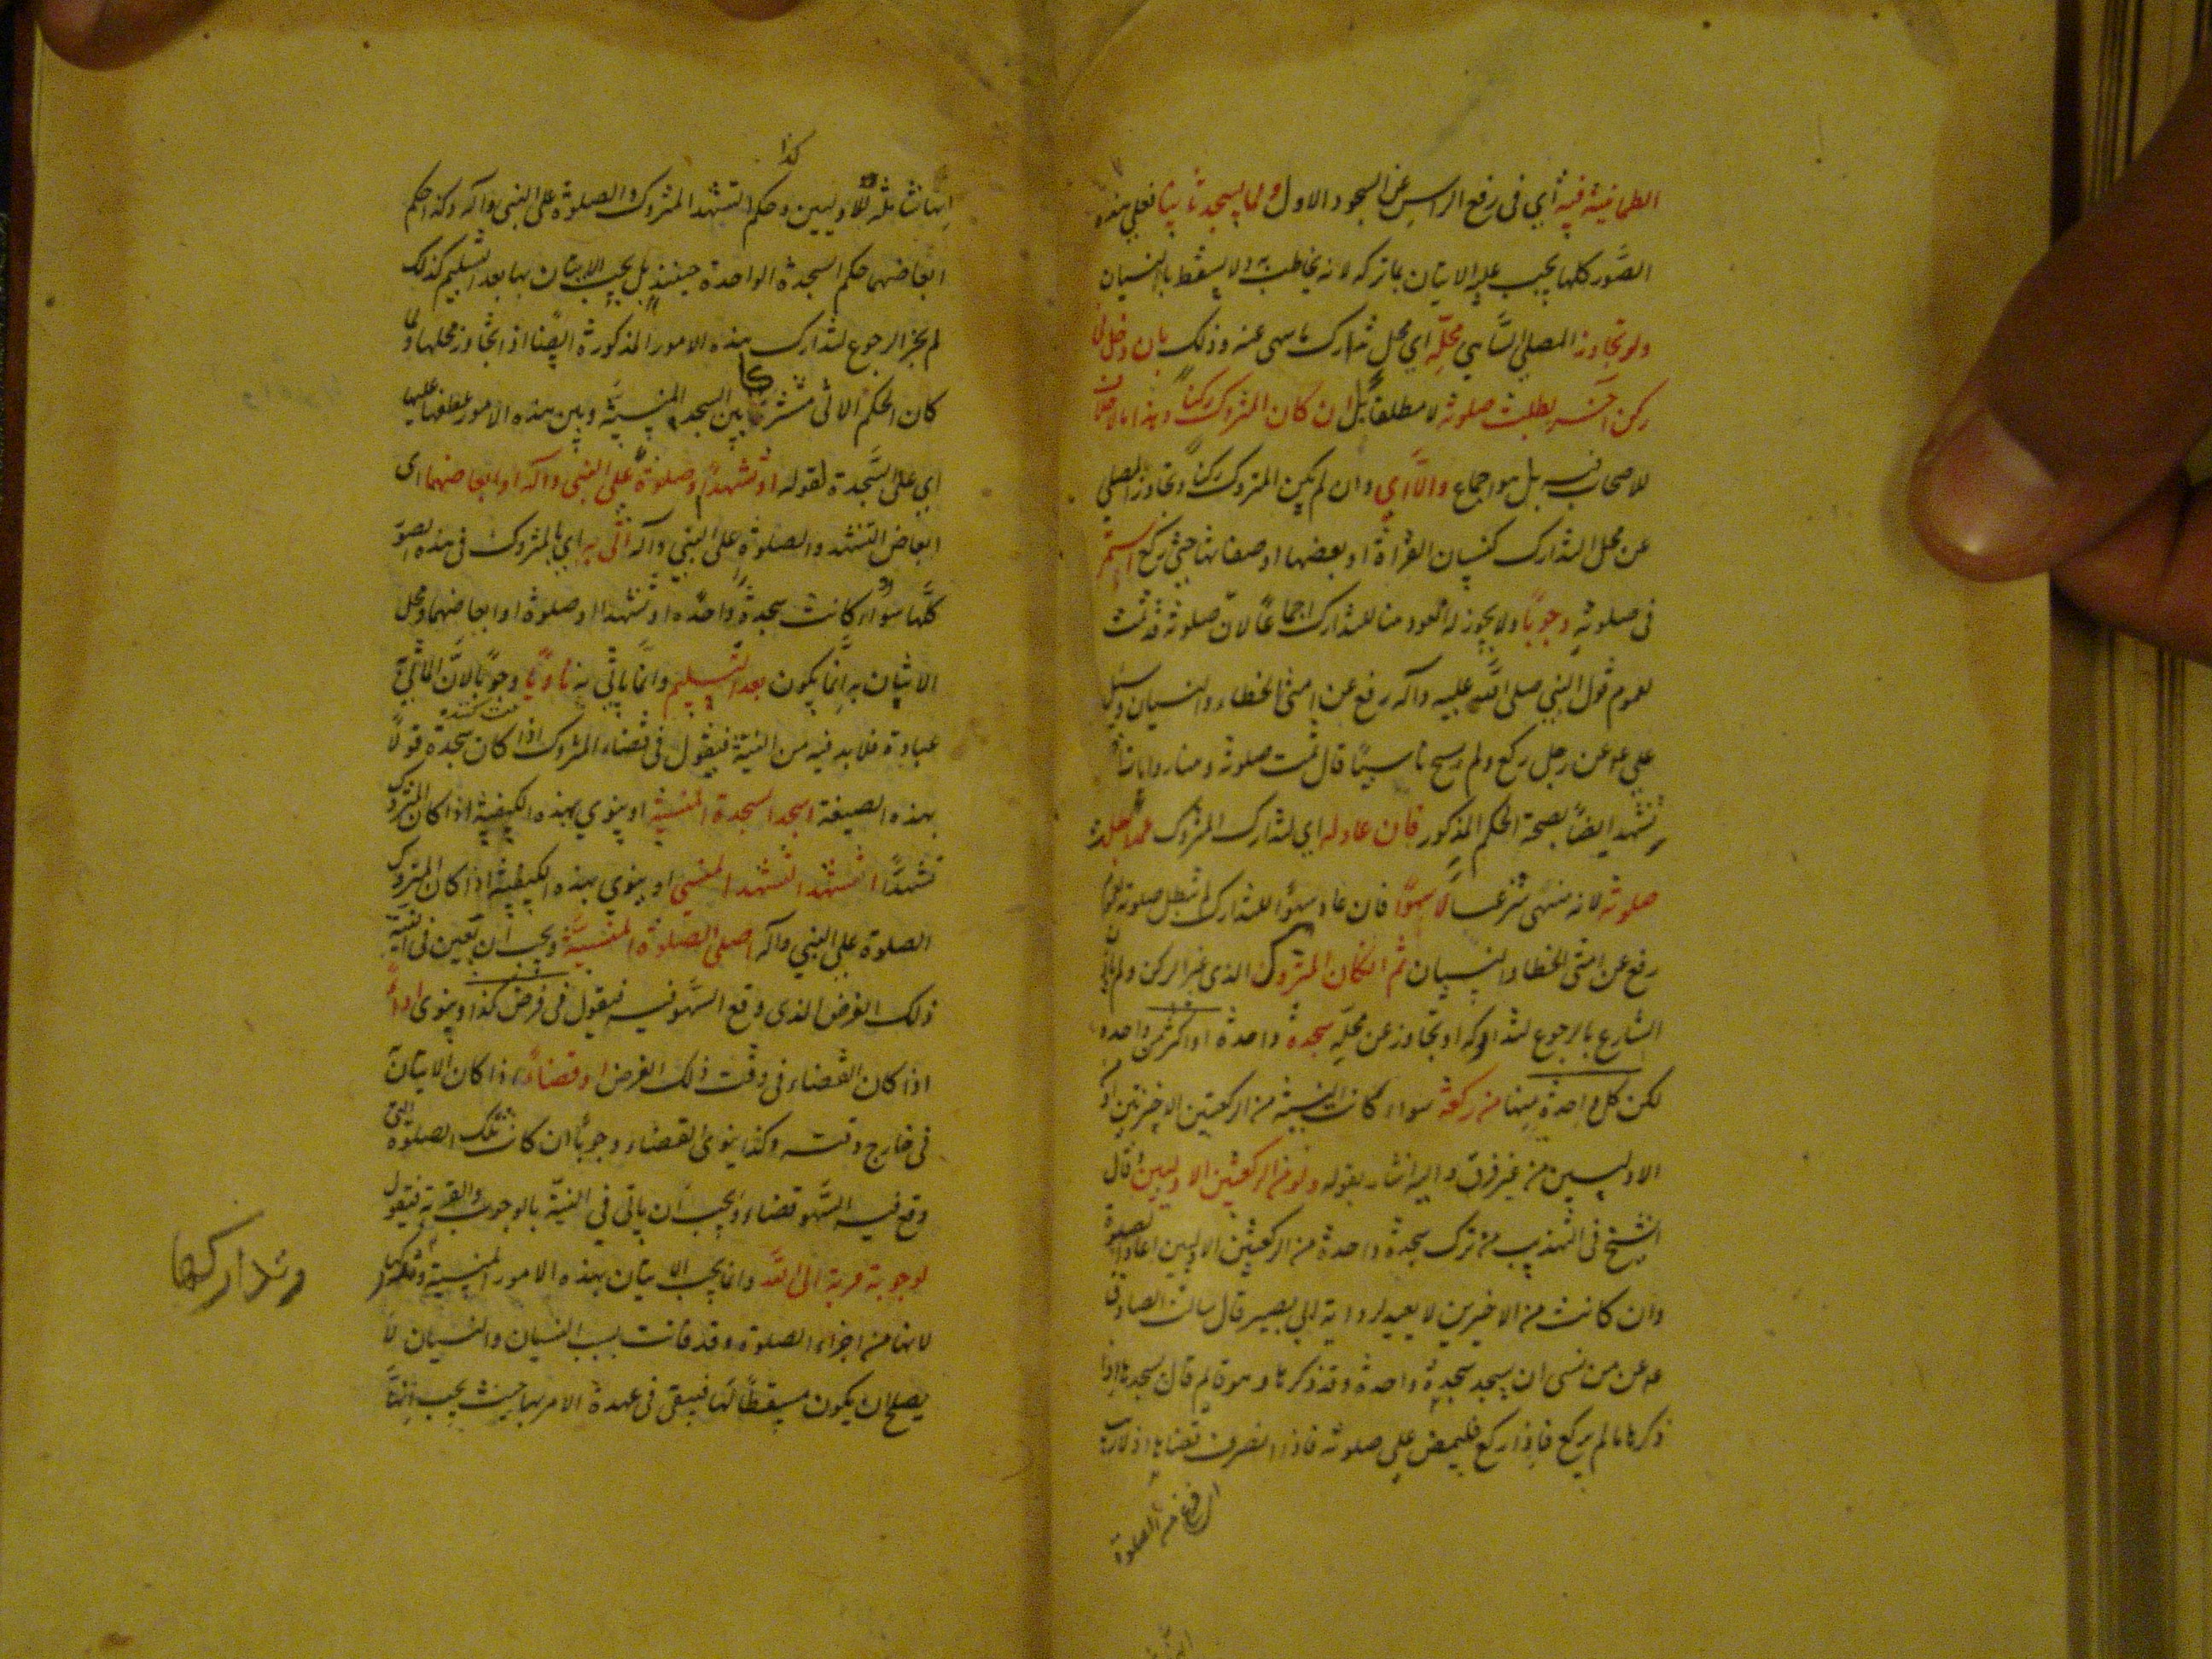 الطمانينة فيه اي في رفع الراس عن السجود الاول ولما يسجد ثانيا فعلي هذه
الصور كلها يجب عليه الاتيان بما تركه لانه يخاطب به ولا يسقط بالنسيان
ولو تجاوز المصلي الساهي محله اي محل تدارك ما سهى عنه وذلك بان دخل في
ركن آخر بطلت صلوته لا مطلقا بل ان كان المتروك ركنا وهذا مما لا خلاف
للاصحاب فيه بل هو اجماع والا اي وان لم يكن المتروك ركنا وتجاوز المصلي
عن محل التدارك كنسيان القراءة او بعضها او صفاتها حتى ركع استمر
في صلوته وجوبا ولا يجوز له العود منا للتدارك اجماعا لان صلوته قد تمت
لعموم قول النبي صلى الله عليه وآله رفع عن امتي الخطاء والنسيان وسئل
علي ع عن رجل ركع ولم يسبح ناسيا قال تمت صلوته ومنا روايات
تشهد ايضا بصحة الحكم المذكور فان عاد له اي لتدارك المتروك عمدا بطلت
صلوته لانه منهى شرعا لا سهوا فان عاد سهوا للتدارك لم تبطل صلوته لعموم
رفع عن امتي الخطا والنسيان ثم ان كان المتروك الذي غير الركن ولم يات
الشارع بالرجوع لتداركه او تجاوز عن محله سجدة واحدة او اكثر من واحدة
لكن كل واحدة منها من ركعة سواء كانت المنسية من الركعتين الاخيرتين او
الاوليين من غير فرق واليه اشار بقوله ولو من الركعتين الاوليين قال
الشيخ في التهذيب من ترك سجدة واحدة من الركعتين الاوليين اعاد الصلوة
وان كانت من الاخيرين لا يعيد لرواية ابي بصير قال سالت الصادق
ع عن من نسى ان يسجد سجدة واحدة وقد ذكرها وهو قائم قال يسجدها اذا
ذكرها ما لم يركع فاذا ركع فليمض على صلوته فاذا انصرف قضاها
الفراغ من الصلوة
كذا
انها شاملة للاوليين وحكم التشهد المتروك والصلوة على النبي وآله وكذا حكم
ابعاضهما حكم السجدة الواحدة حينئذ بل يجب الاتيان بها بعد التسليم كذلك
لم يجز الرجوع لتدارك هذه الامور المذكورة ايضا اذا تجاوز محلها ولما
كان الحكم الاتي مشتركا بين السجدة المنسية وبين هذه الامور عطفها عليها
اي على السجدة لقوله او تشهدا وصلوة على النبي وآله او ابعاضهما اى
ابعاض التشهد والصلوة على النبي وآله اتى به اي بالمتروك في هذه الصور
كلها سواء كانت سجدة واحدة او تشهدا او صلوة او ابعاضهما ومحل
الاتيان به انما يكون بعد التسليم وانما ياتي به ناويا وجوبا لان الماتي
عبادة فلا بد فيه من النية فيقول في قضاء المتروك اذا كان سجدة قولا
بهذه الصيغة اسجد السجدة المنسية او ينوي بهذه الكيفية اذا كان المتروك
تشهدا اتشهد التشهد المنسي او ينوي بهذه الكيفية اذا كان المتروك
الصلوة على النبي وآله اصلي الصلوة المنسية ويجب ان يعين في النية
ذلك الفرض الذي وقع السهو فيه فيقول في فرض كذا وينوي اداء
اذا كان القضاء في وقت ذلك الفرض او قضاء اذا كان الاتيان
في خارج وقته وكذا ينوي القضاء وجوبا ان كانت تلك الصلوة التي
وقع فيه السهو قضاء ويجب ان ياتي في النية بالوجوب والقربة فيقول
لوجوبه قربة الى الله وانما يجب الاتيان بهذه الامور المنسية وتداركها
وتداركها
لانها من اجزاء الصلوة وقد فاتت بسبب النسيان والنسيان لا
يصلح ان يكون مسقطا لها فيبقى في عهدة الامر بها حينئذ يجب